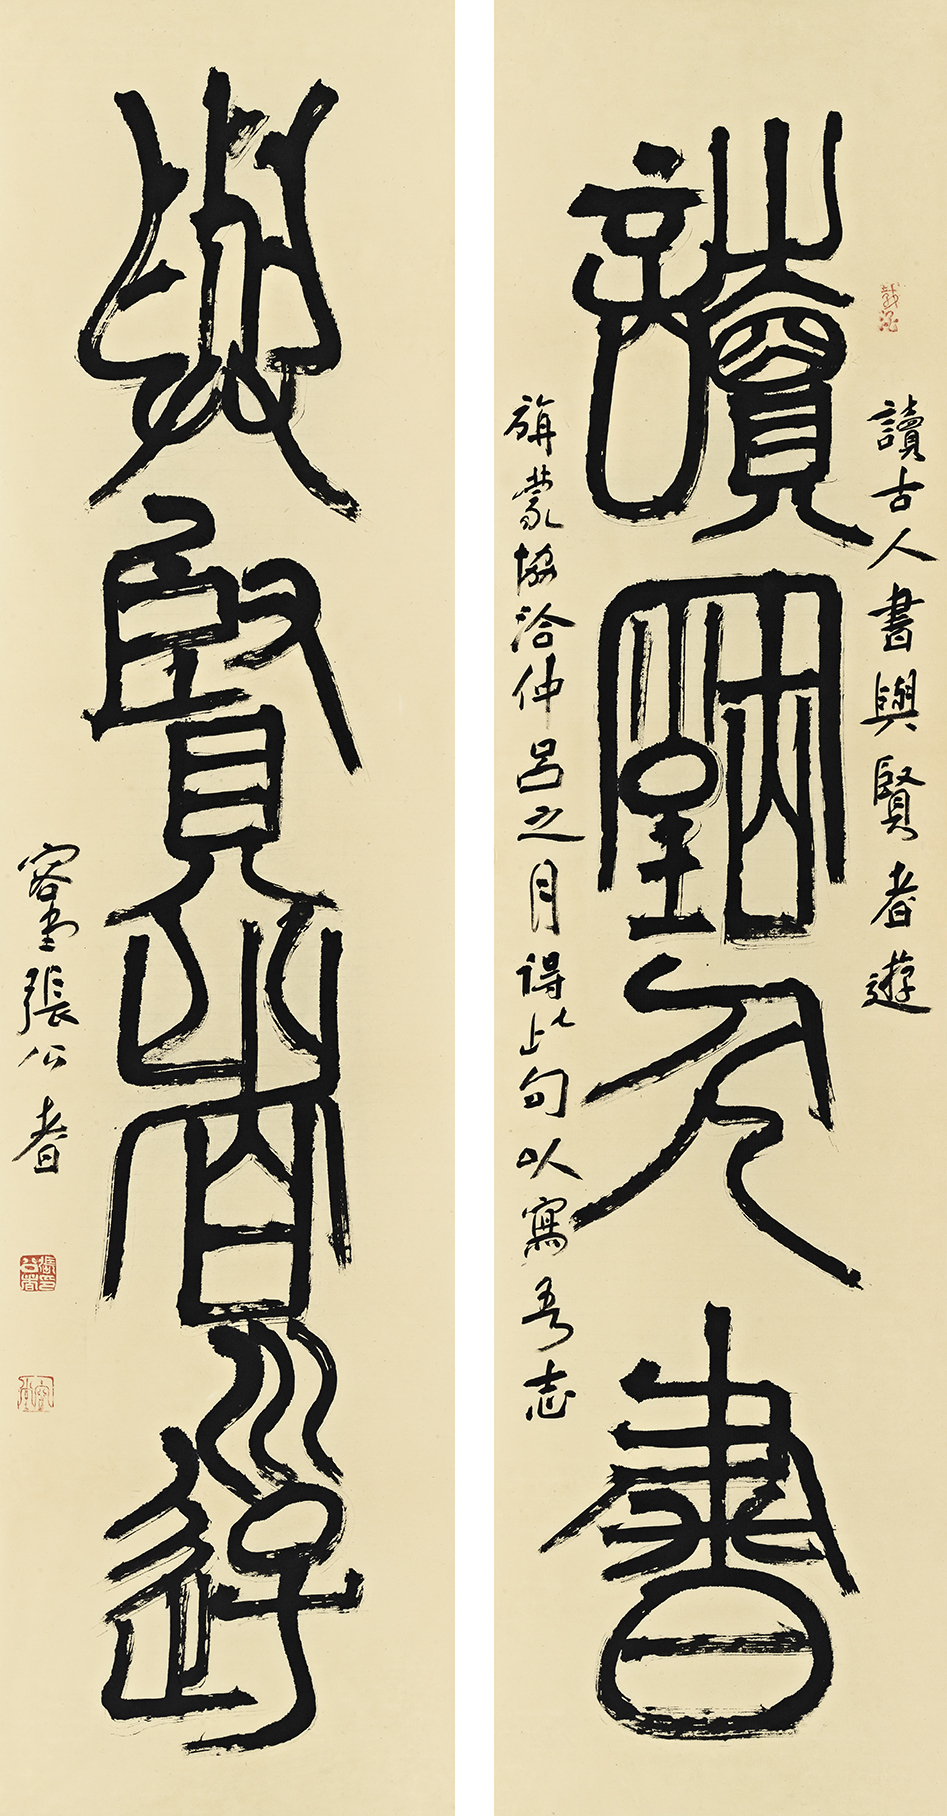 讀古人書與賢者遊
讀古人書
旃蒙協洽仲呂之月得此句以寫吾志
與賢者遊
容堂張公者
張印公者
容堂